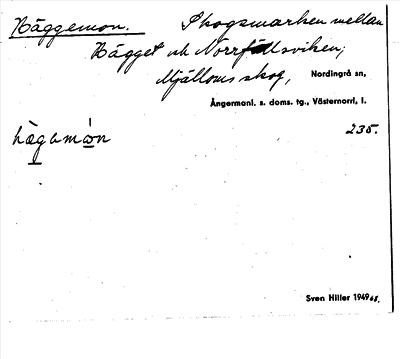 Häggemon. Skogsmarken mellan
Hägget och Norrfällsviken;
Mjälloms skog, Nordingrå sn,
Ångermanl. s. doms. tg., Västernorrl. l.
hägamon 235.
Sven Hiller 1949